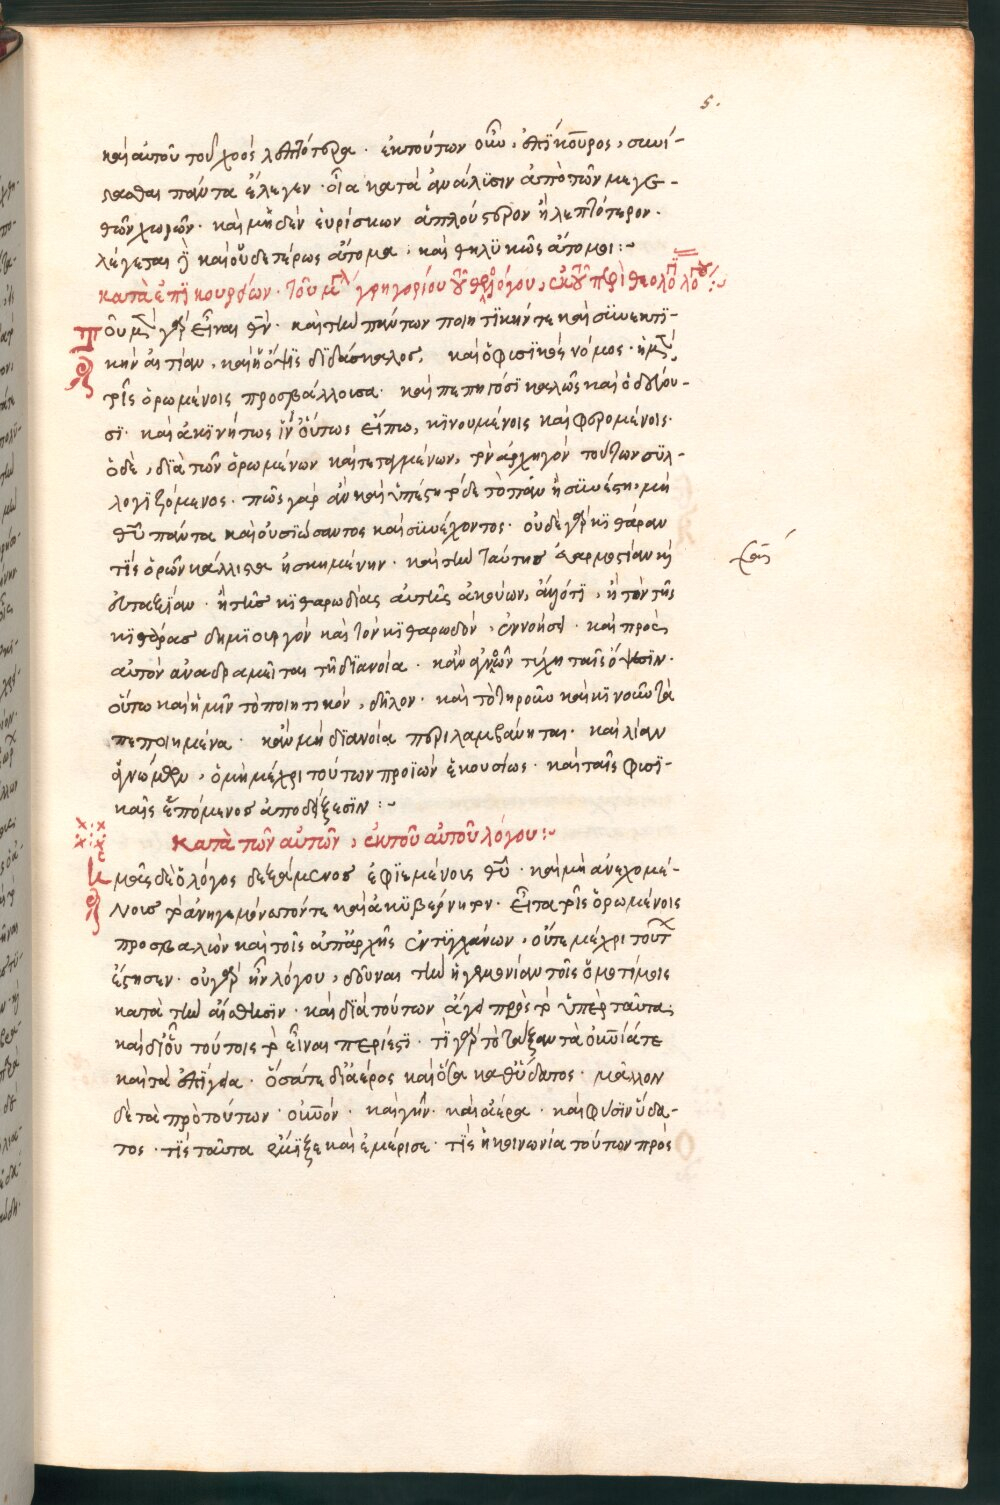 5.
καὶ αὐτοῦ τοῦ χοὸς λεπτότερα · ἐκ τούτων οὖν, ἐπίκουρος, συνί-
στασθαι πάντα ἔλεγεν · οἷα κατὰ ἀνάλϊσιν ἀπὸ τῶν μεγε-
θῶν χωρῶν · καὶ μηδὲν εὑρίσκων ἁπλούστερον ἢ λεπτότερον ·
λέγεται καὶ οὐδετέρως ἄτομα, καὶ θηλυκῶς ἄτομοι :~
κατὰ ἐπϊκουρείων · τοῦ γρηγορίου τοῦ θεολόγου, ἐκ τοῦ περὶ θεολο λο :~
Τοῦ μ γὰρ εἶναι θν · καὶ τὴν πάντων ποιητϊκήν τε καὶ συνεκτϊ-
κὴν αἰτίαν, καὶ ἡ ὄψϊς δϊδάσκαλος, καὶ ὁ φυσϊκὸς νόμος · ἡ μ
τοῖς ὁρωμένοις προσβάλλουσα · καὶ πεπηγόσϊ καλῶς καὶ ὁδεύου-
σϊ · καὶ ἀκϊνήτως ἵν οὕτως εἴπω, κϊνουμένοις καὶ φερομένοις ·
ὁ δὲ, δϊὰ τῶν ὁρωμένων καὶ τεταγμένων, τὸν ἀρχηγὸν τούτων συλ-
λογϊζόμενος · πῶς γὰρ ἂν καὶ ὑπέστη τόδε τὸ πᾶν ἢ συνέστη, μὴ
θυ πάντα καὶ οὐσϊώσαντος καὶ συνέχοντος · οὐδὲ γὰρ κϊθάραν
τὶς ὁρῶν κάλλιστα ἠσκημένην · καὶ τὴν ταύτης εὐαρμοστίαν καὶ
εὐταξΐαν · ἢ τῆς κϊθαρωδίας αὐτῆς ἀκούων, ἄλλό τι, ἢ τὸν τῆς
κϊθάρας δημϊουργὸν καὶ τὸν κϊθαρωδὸν, ἐννοήσει · καὶ πρὸς
αὐτὸν ἀναδραμεῖται τῆ δϊανοία · κἂν ἀγνοῶν τύχη ταῖς ὄψεσϊν ·
οὕτω καὶ ἡμῖν τὸ ποιητικὸν, δῆλον · καὶ τὸ τηροῦν καὶ κϊνοῦν τὰ
πεποιημένα · κἂν μὴ δϊανοία περιλαμβάνηται · καὶ λίαν
ἀγνώμων, ὁ μὴ μέχρι τούτων προϊὼν ἑκουσίως · καὶ ταῖς φυσϊ-
καῖς ἑπόμενος ἀποδείξεσϊν :~
κατὰ τῶν αὐτῶν, ἐκ τοῦ αὐτοῦ λόγου :~
μᾶς δὲ ὁ λόγος δεξάμενος ἐφϊεμένους θυ · καὶ μὴ ἀνεχομέ-
νους τὸ ἀνηγεμόνευτόν τε καὶ ἀκϋβέρνητον · εἶτα τοῖς ὁρωμένοις
προσβαλὼν καὶ τοῖς ἀπ ἀρχῆς ἐντυγχάνων, οὔτε μέχρι τουτ
ἔστησεν · οὐ γὰρ ἦν λόγου, δοῦναι τὴν ἡγεμονίαν τοῖς ὁμοτίμοις
κατὰ τὴν αἴσθησϊν · καὶ δϊὰ τούτων ἄγει πρὸς τὸ ὑπὲρ ταῦτα ·
καὶ δϊ οὗ τούτοις τὸ εἶναι περίεστϊ · τί γὰρ τὸ τάξαν τὰ οὐνϊά τε
καὶ τὰ ἐπίγεια · ὅσα τε δϊ ἀέρος καὶ ὅσα καθ ὕδατος · μᾶλλον
δὲ τὰ πρὸ τούτων · οὐνόν · καὶ γῆν · καὶ ἀέρα · καὶ φύσϊν ὕδα-
τος · τίς ταῦτα ἔμϊξε καὶ ἐμέρισε · τίς ἡ κοινωνία τούτων πρὸς